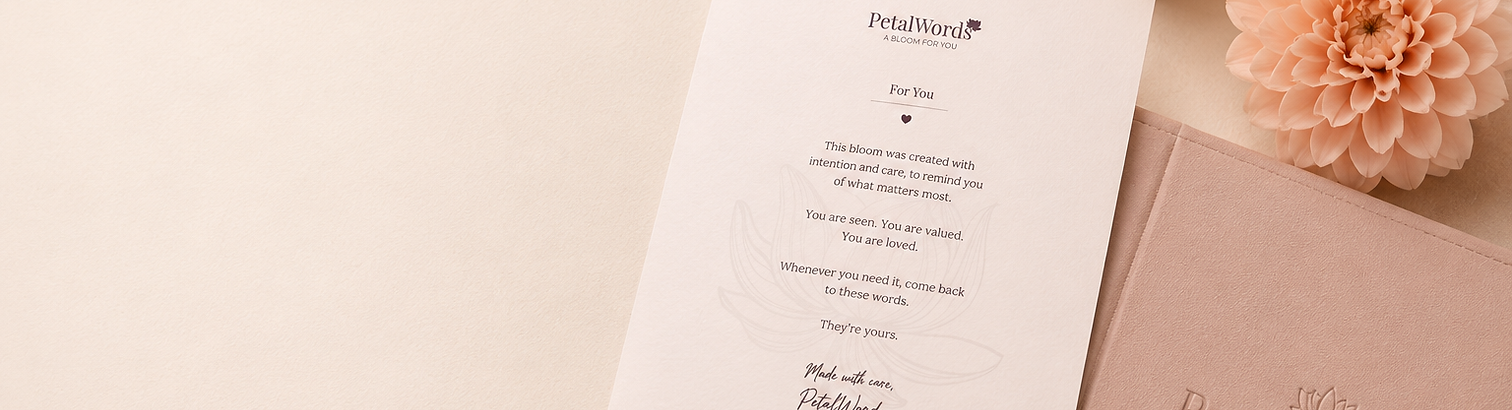 PetalWords
A BLOOM FOR YOU
For You
This bloom was created with
intention and care, to remind you
of what matters most.
You are seen. You are valued.
You are loved.
Whenever you need it, come back
to these words.
They're yours.
Made with care,